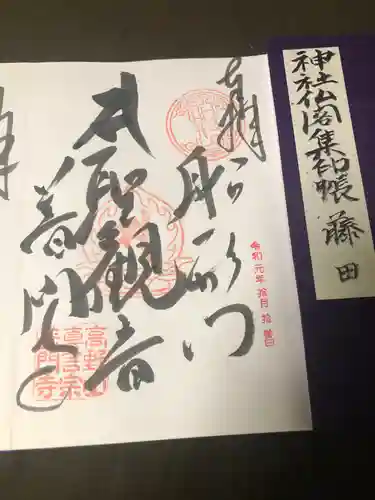 神社仏閣集印帳 藤田
奉拝
船形山
聖観音
普門寺
令和元年 拾月 拾
高野山
真言宗
普門寺